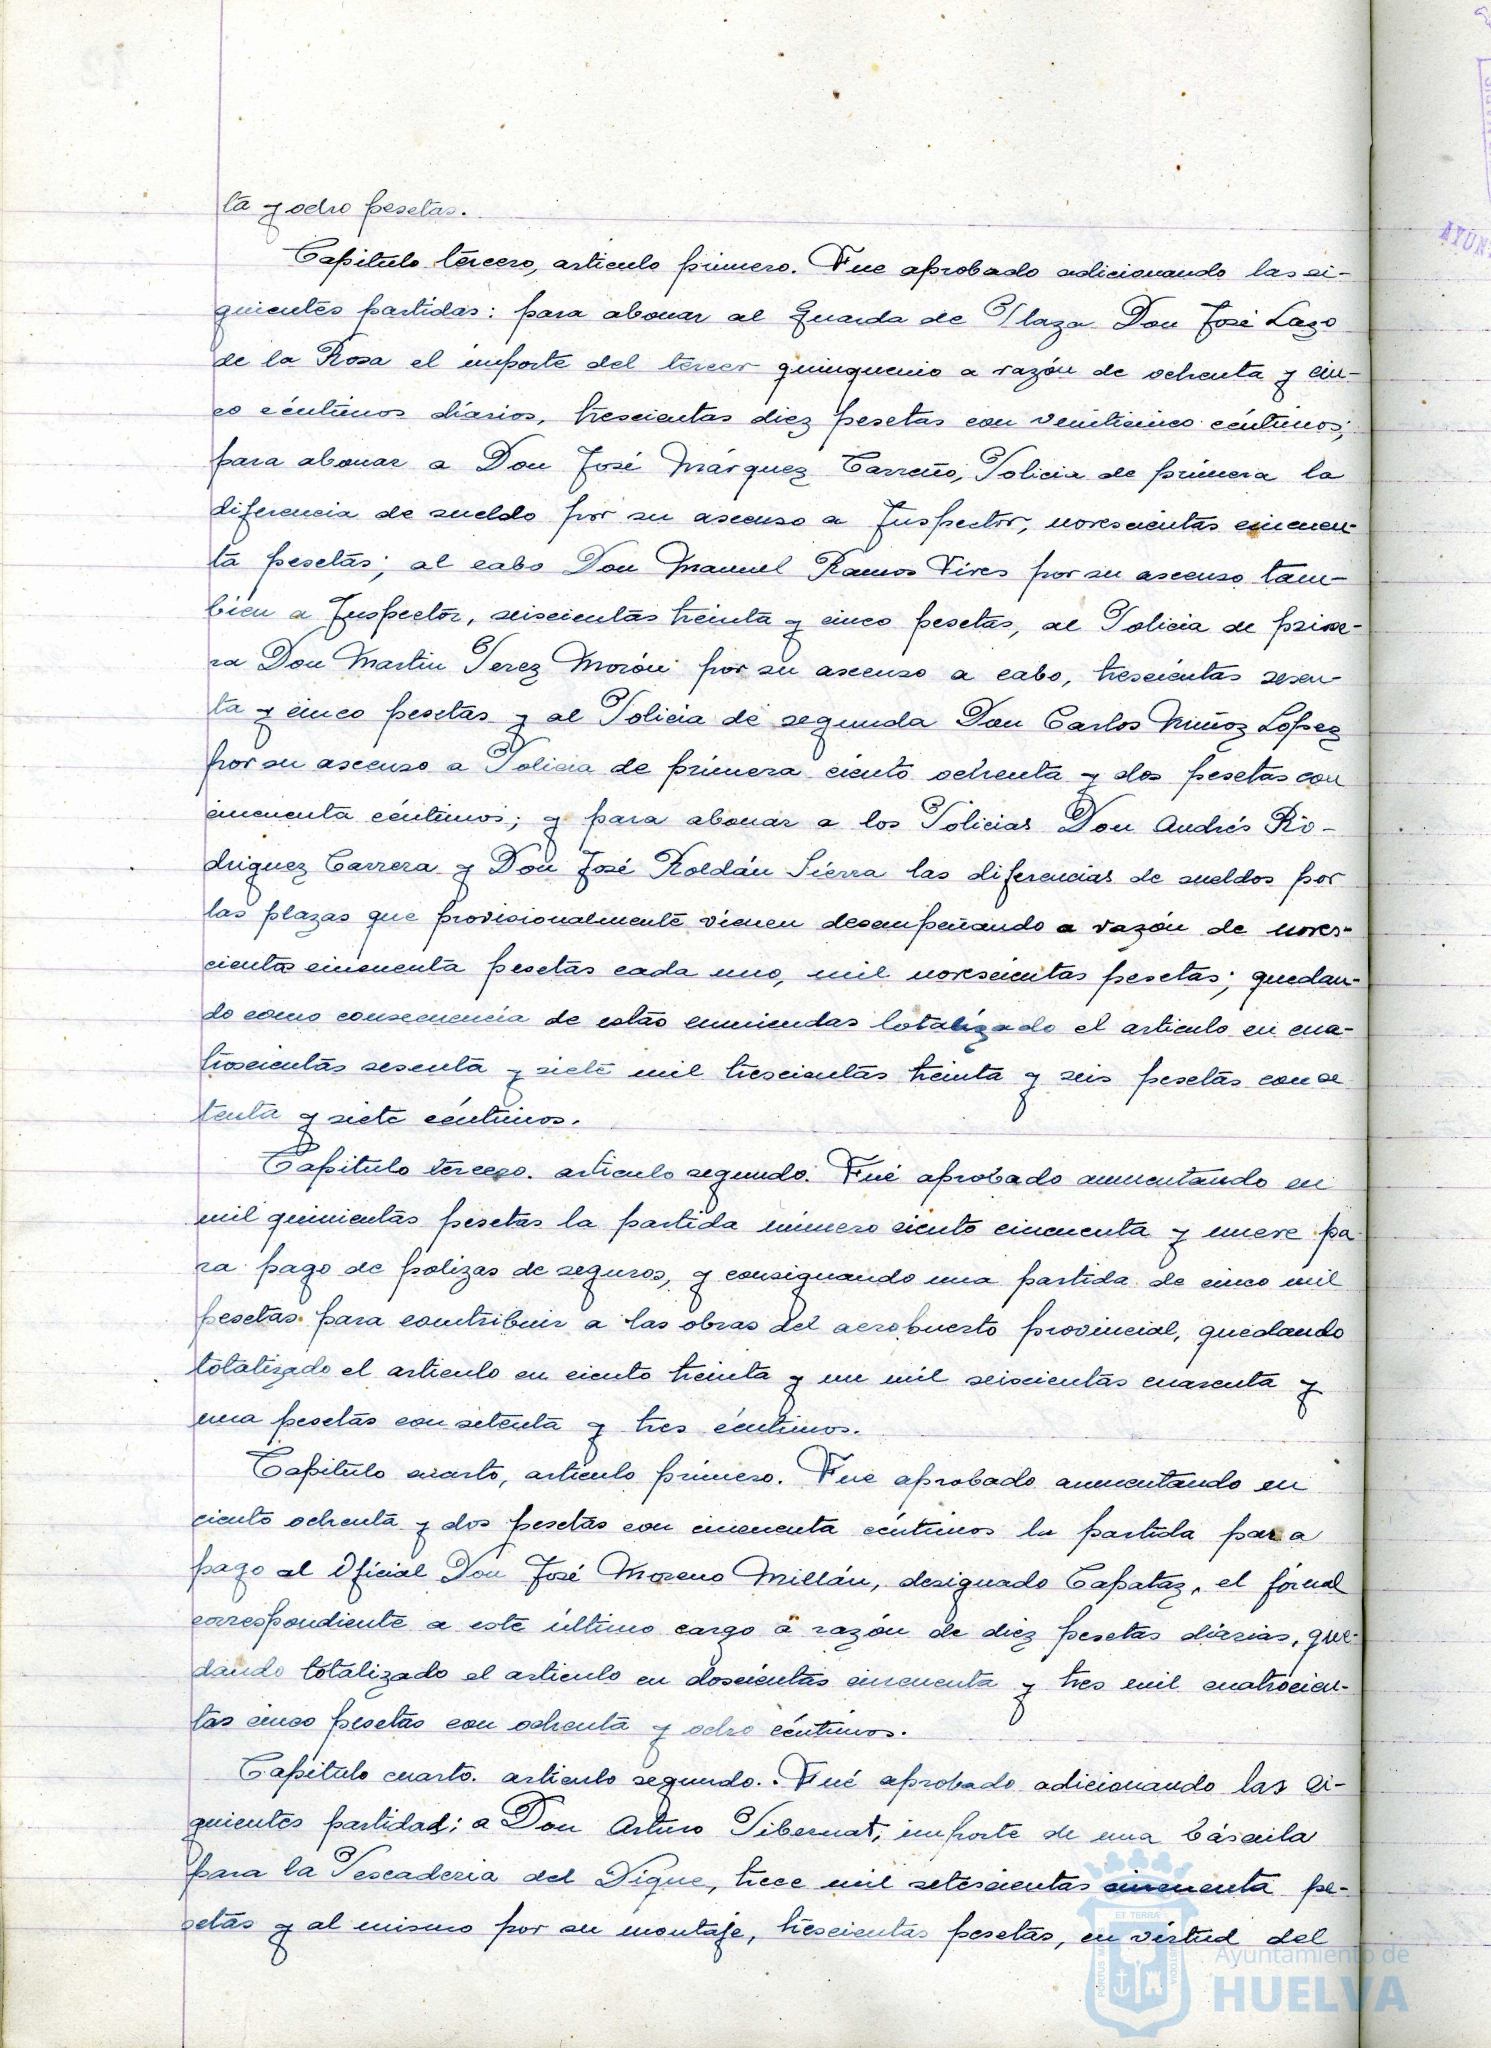 ta y ocho pesetas.
Capitulo tercero, articulo primero. Fue aprobado adicionando las si-
guientes partidas: para abonar al Guarda de Plaza Don José Lazo
de la Rosa el importe del tercer quinquenio a razón de ochenta y cin-
co céntimos diarios, trescientas diez pesetas con veinticinco céntimos;
para abonar a Don José Márquez Carreño, Policia de primera la
diferencia de sueldo por su ascenso a Inspector, novescientas cincuen-
ta pesetas; al cabo Don Manuel Ramos Vives por su ascenso tam-
bien a Inspector, seiscientas treinta y cinco pesetas, al Policia de prime-
ra Don Martin Perez Morón por su ascenso a cabo, trescientas sesen-
ta y cinco pesetas y al Policia de segunda Don Carlos Muñoz Lopez
por su ascenso a Policia de primera ciento ochenta y dos pesetas con
cincuenta céntimos; y para abonar a los Policias Don Andrés Ro-
driguez Carrera y Don José Roldán Sierra las diferencias de sueldos por
las plazas que provisionalmente vienen desempeñando a razón de noves-
cientas cincuenta pesetas cada uno, mil novescientas pesetas; quedan-
do como consecuencia de estas enmiendas totalizado el articulo en cua-
troscientas sesenta y siete mil trescientas treinta y seis pesetas con se
tenta y siete céntimos.
Capitulo tercero. articulo segundo. Fué aprobado aumentando en
mil quinientas pesetas la partida número ciento cincuenta y nueve pa-
ra pago de polizas de seguros, y consignando una partida de cinco mil
pesetas para contribuir a las obras del aeropuerto provincial, quedando
totalizado el articulo en ciento treinta y un mil seiscientas cuarenta y
una pesetas con setenta y tres céntimos.
Capitulo cuarto, articulo primero. Fue aprobado aumentando en
ciento ochenta y dos pesetas con cincuenta céntimos la partida para
pago al Oficial Don José Moreno Millán, designado Capataz, el jornal
correspondiente a este último cargo a razón de diez pesetas diarias, que-
dando totalizado el articulo en doscientas cincuenta y tres mil cuatrocien-
tas cinco pesetas con ochenta y ocho céntimos.
Capitulo cuarto. articulo segundo. Fué aprobado adicionando las si-
guientes partidas: a Don Arturo Pibernat, importe de una báscula
para la Pescaderia del Dique, trece mil setescientas cincuenta pe-
setas y al mismo por su montaje, trescientas pesetas, en virtud del
ET TERRÆ
PORTUS MARIS
CUSTODIA
Ayuntamiento de
HUELVA